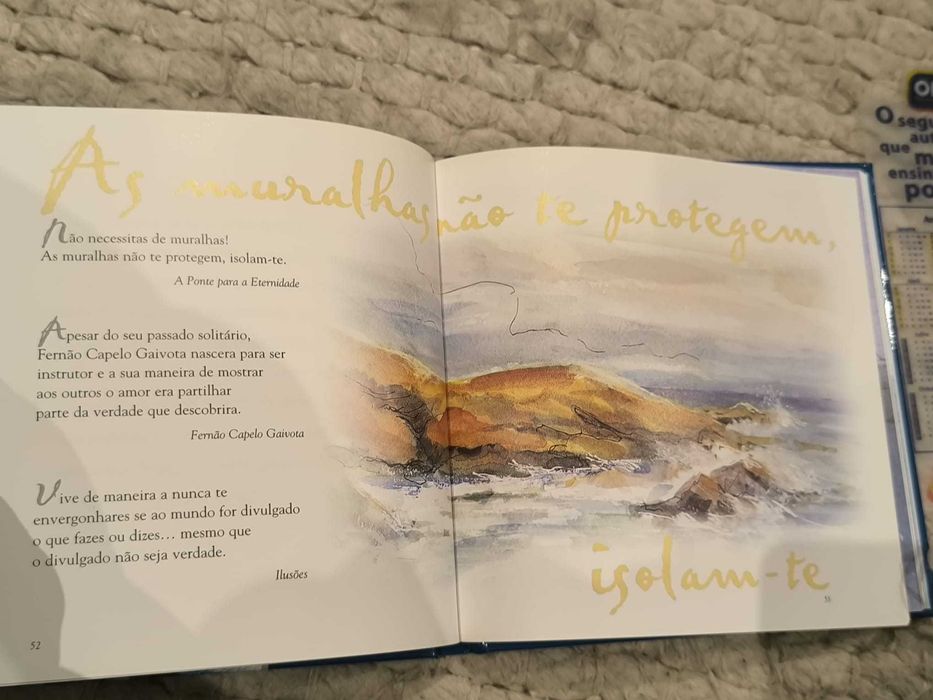 As muralhas não te protegem,
Não necessitas de muralhas!
As muralhas não te protegem, isolam-te.
A Ponte para a Eternidade
Apesar do seu passado solitário,
Fernão Capelo Gaivota nascera para ser
instrutor e a sua maneira de mostrar
aos outros o amor era partilhar
parte da verdade que descobrira.
Fernão Capelo Gaivota
Vive de maneira a nunca te
envergonhares se ao mundo for divulgado
o que fazes ou dizes... mesmo que
o divulgado não seja verdade.
Ilusões
52
isolam-te
O
que